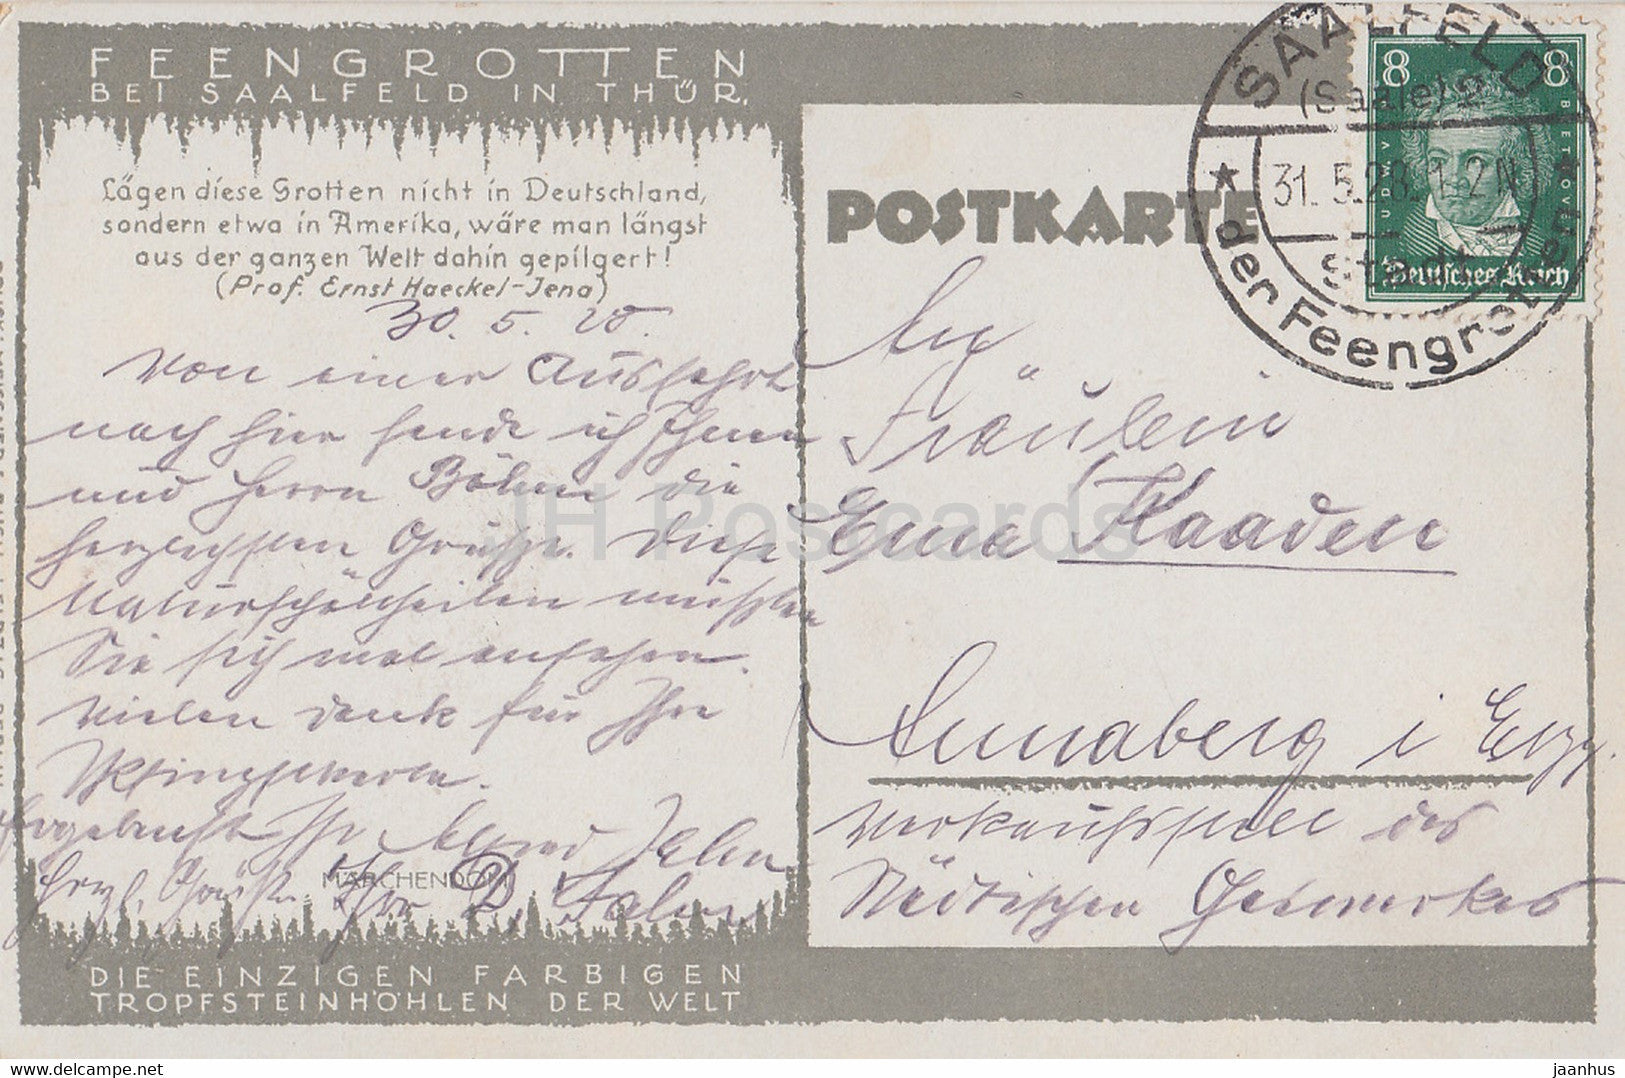 FEENGROTTEN
BEI SAALFELD IN THÜR.
Lägen diese Grotten nicht in Deutschland,
sondern etwa in Amerika, wäre man längst
aus der ganzen Welt dahin gepilgert!
(Prof. Ernst Haeckel-Jena)
30. 5. 28.
Von einer Ausfahrt
nach hier sende ich Ihnen
und Herrn Böhme die
herzlichsten Grüße. Diese
Naturschönheiten müßten
Sie sich mal ansehen.
Vielen Dank für Ihre
Ergebenst Ihr
Herzl. Grüße Ihr
MÄRCHENDOM
DIE EINZIGEN FARBIGEN
TROPFSTEINHÖHLEN DER WELT
POSTKARTE
SAALFELD
(Saale) 2
31. 5. 28. 1-2 N
Stadt
der Feengrotten
8 8
LUDWIG V. BEETHOVEN
Deutsches Reich
An
Fräulein
Erna Kaaden
Annaberg i Erzg.
Verkaufsstelle des
Städtischen Gaswerkes
JH Postcards
www.delcampe.net
jaanhus